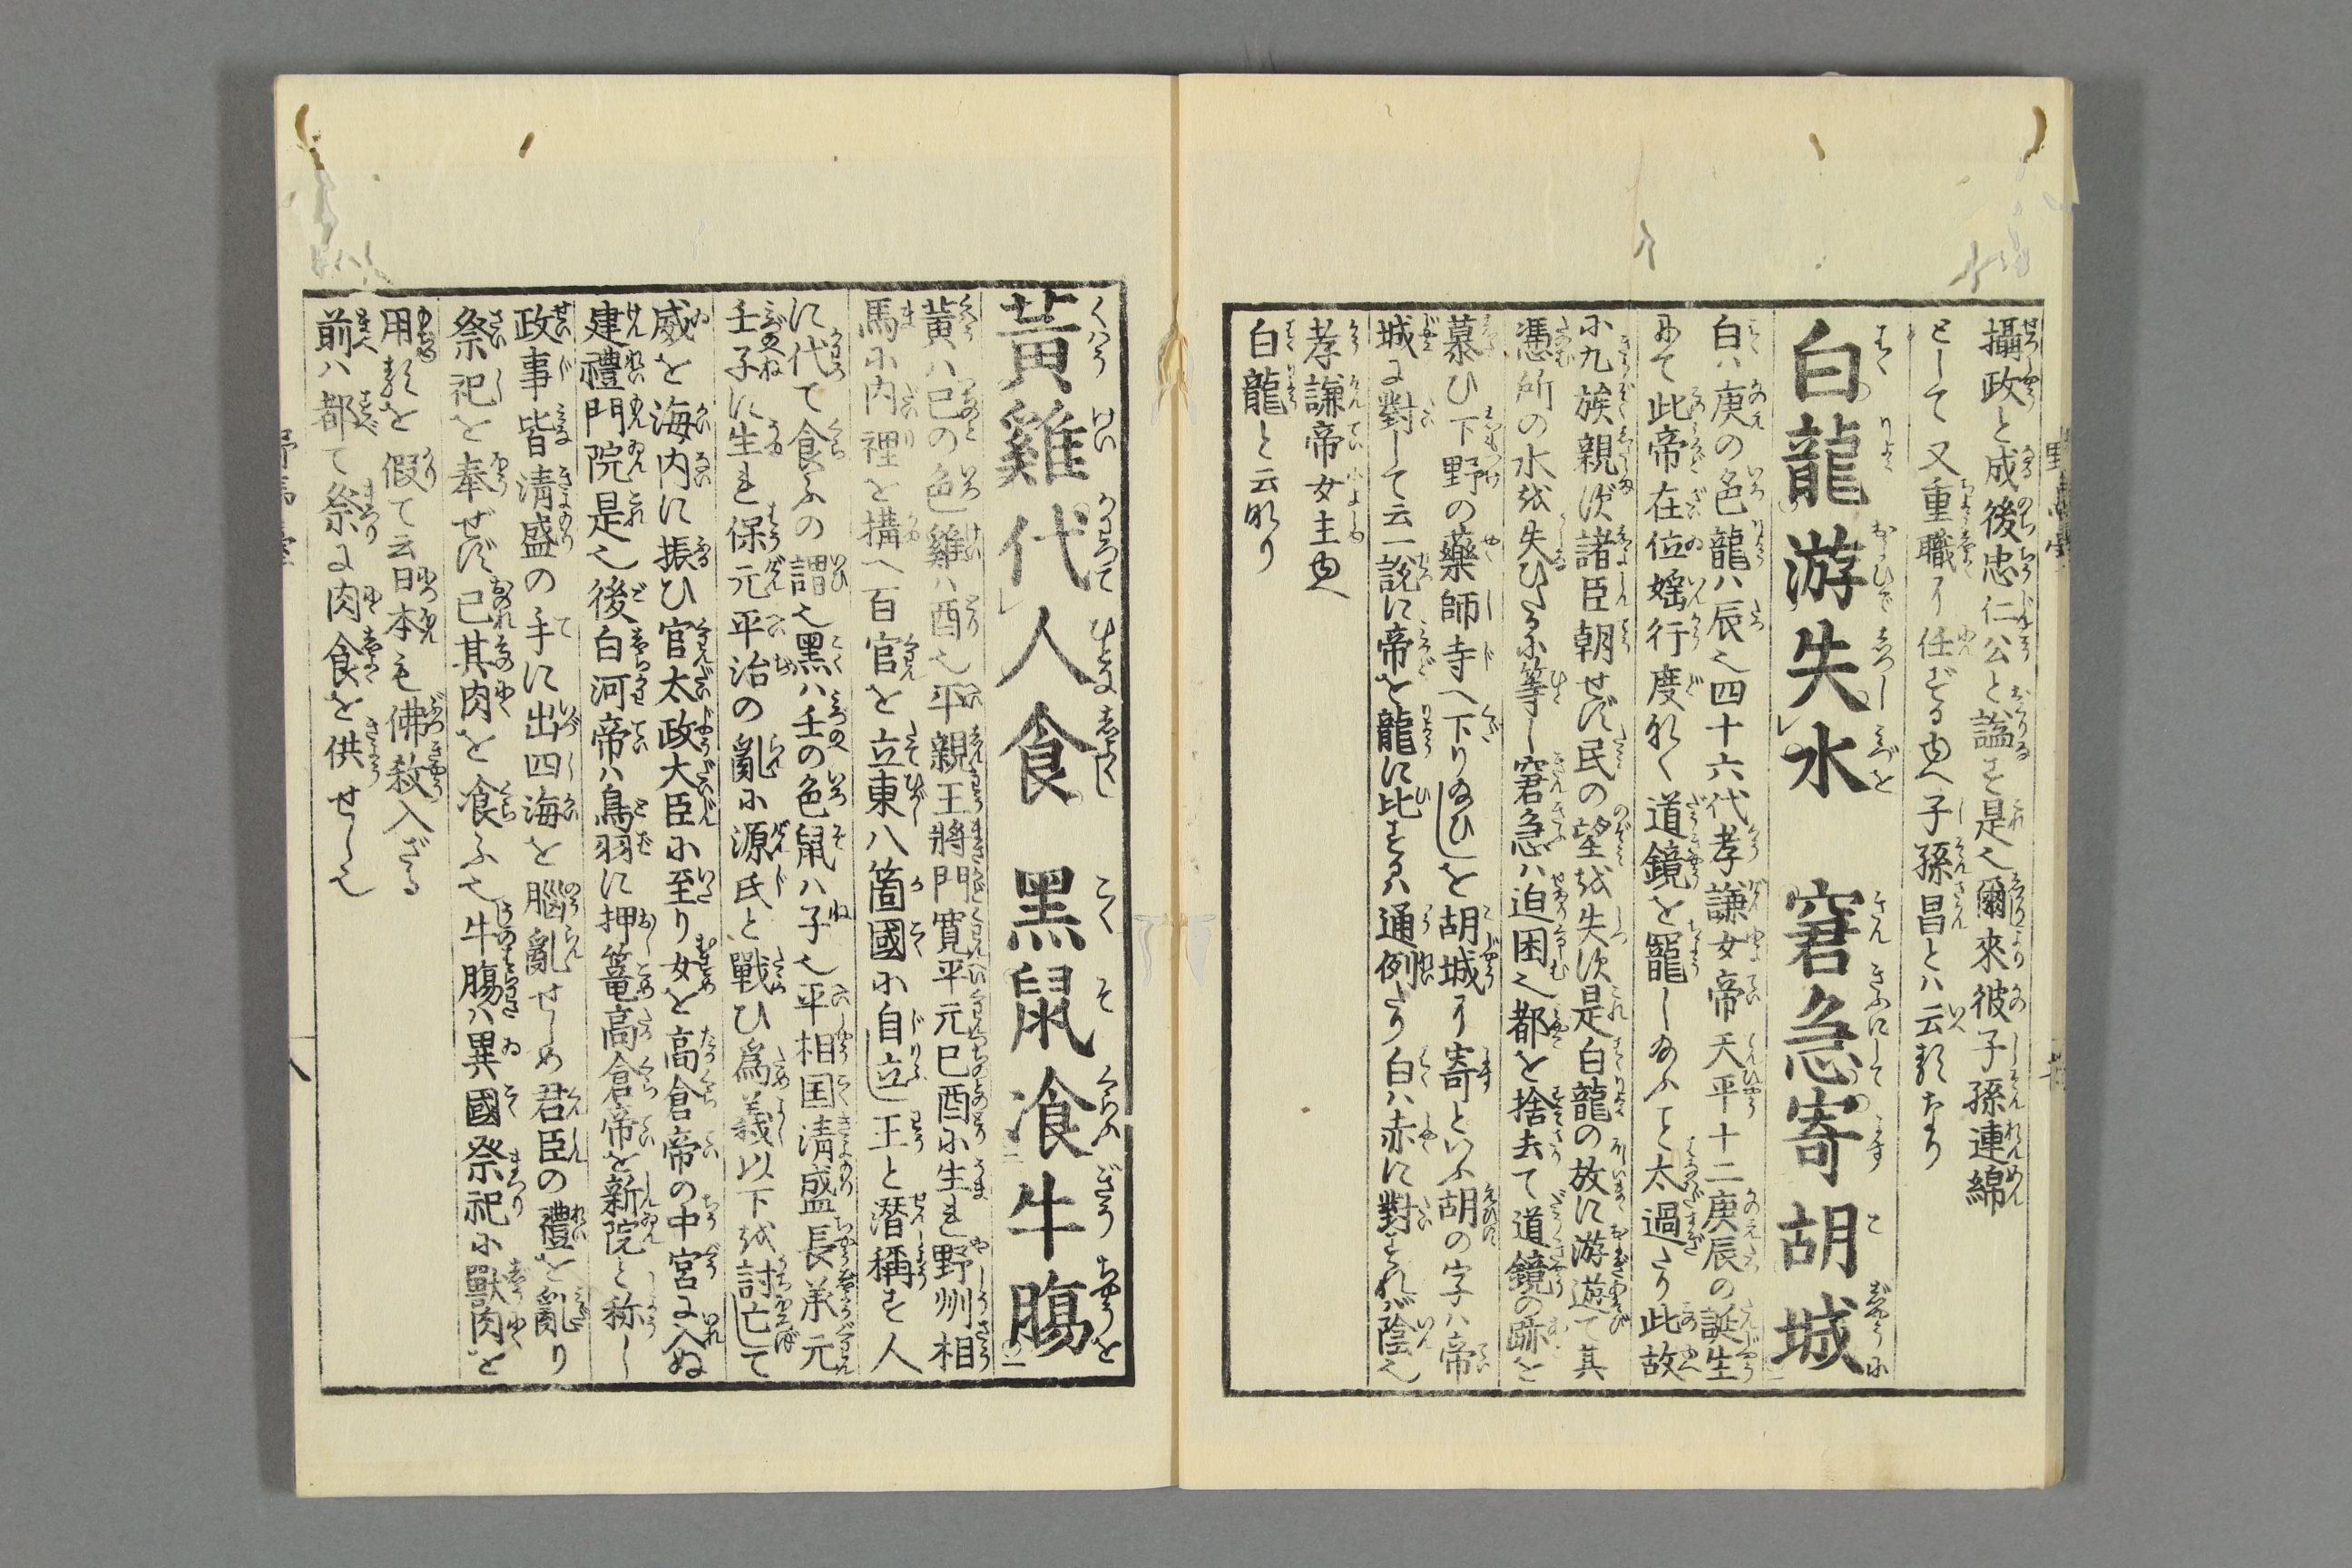 攝政と成後忠仁公と謚す是也爾來彼子孫連綿
として又重職に任ぜる由へ子孫昌とハ云歟なり
白龍游失水　窘急寄胡城
白ハ庚の色龍ハ辰也四十六代孝謙女帝天平十二庚辰の誕生
にて此帝在位婬行度なく道鏡を寵し給ふこと太過たり此故
に九族親ず諸臣朝せず民の望を失ふ是白龍の放に游遊て其
憑所の水を失ひたるに等し窘急ハ迫困也都を捨去て道鏡の跡を
慕ひ下野の藥師寺へ下り給ひしを胡城に寄といふ胡の字ハ帝
城に對して云一說に帝を龍に比するハ通例たり白ハ赤に對すれバ陰也
孝謙帝女主由へ
白龍と云なり
黃雞代人食　黑鼠飡牛膓
黃ハ己の色雞ハ酉也平親王將門寛平元己酉に生れ野州相
馬に内裡を搆へ百官を立東八箇國に自立し王と潜稱す人
に代て食ふの謂也黑ハ壬の色鼠ハ子也平相国淸盛長承元
壬子に生れ保元平治の亂に源氏と戰ひ爲義以下を討亡して
威を海内に振ひ官太政大臣に至り女を高倉帝の中宮に入ぬ
建禮門院是也後白河帝ハ鳥羽に押篭高倉帝を新院と称し
政事皆淸盛の手に出四海を腦亂せしめ君臣の禮を亂り
祭祀を奉ぜず己其肉を飡ふ也牛膓ハ異國祭祀に獸肉を
用歟を假て云日本も佛敎入ざる
前ハ都て祭に肉食を供せし也